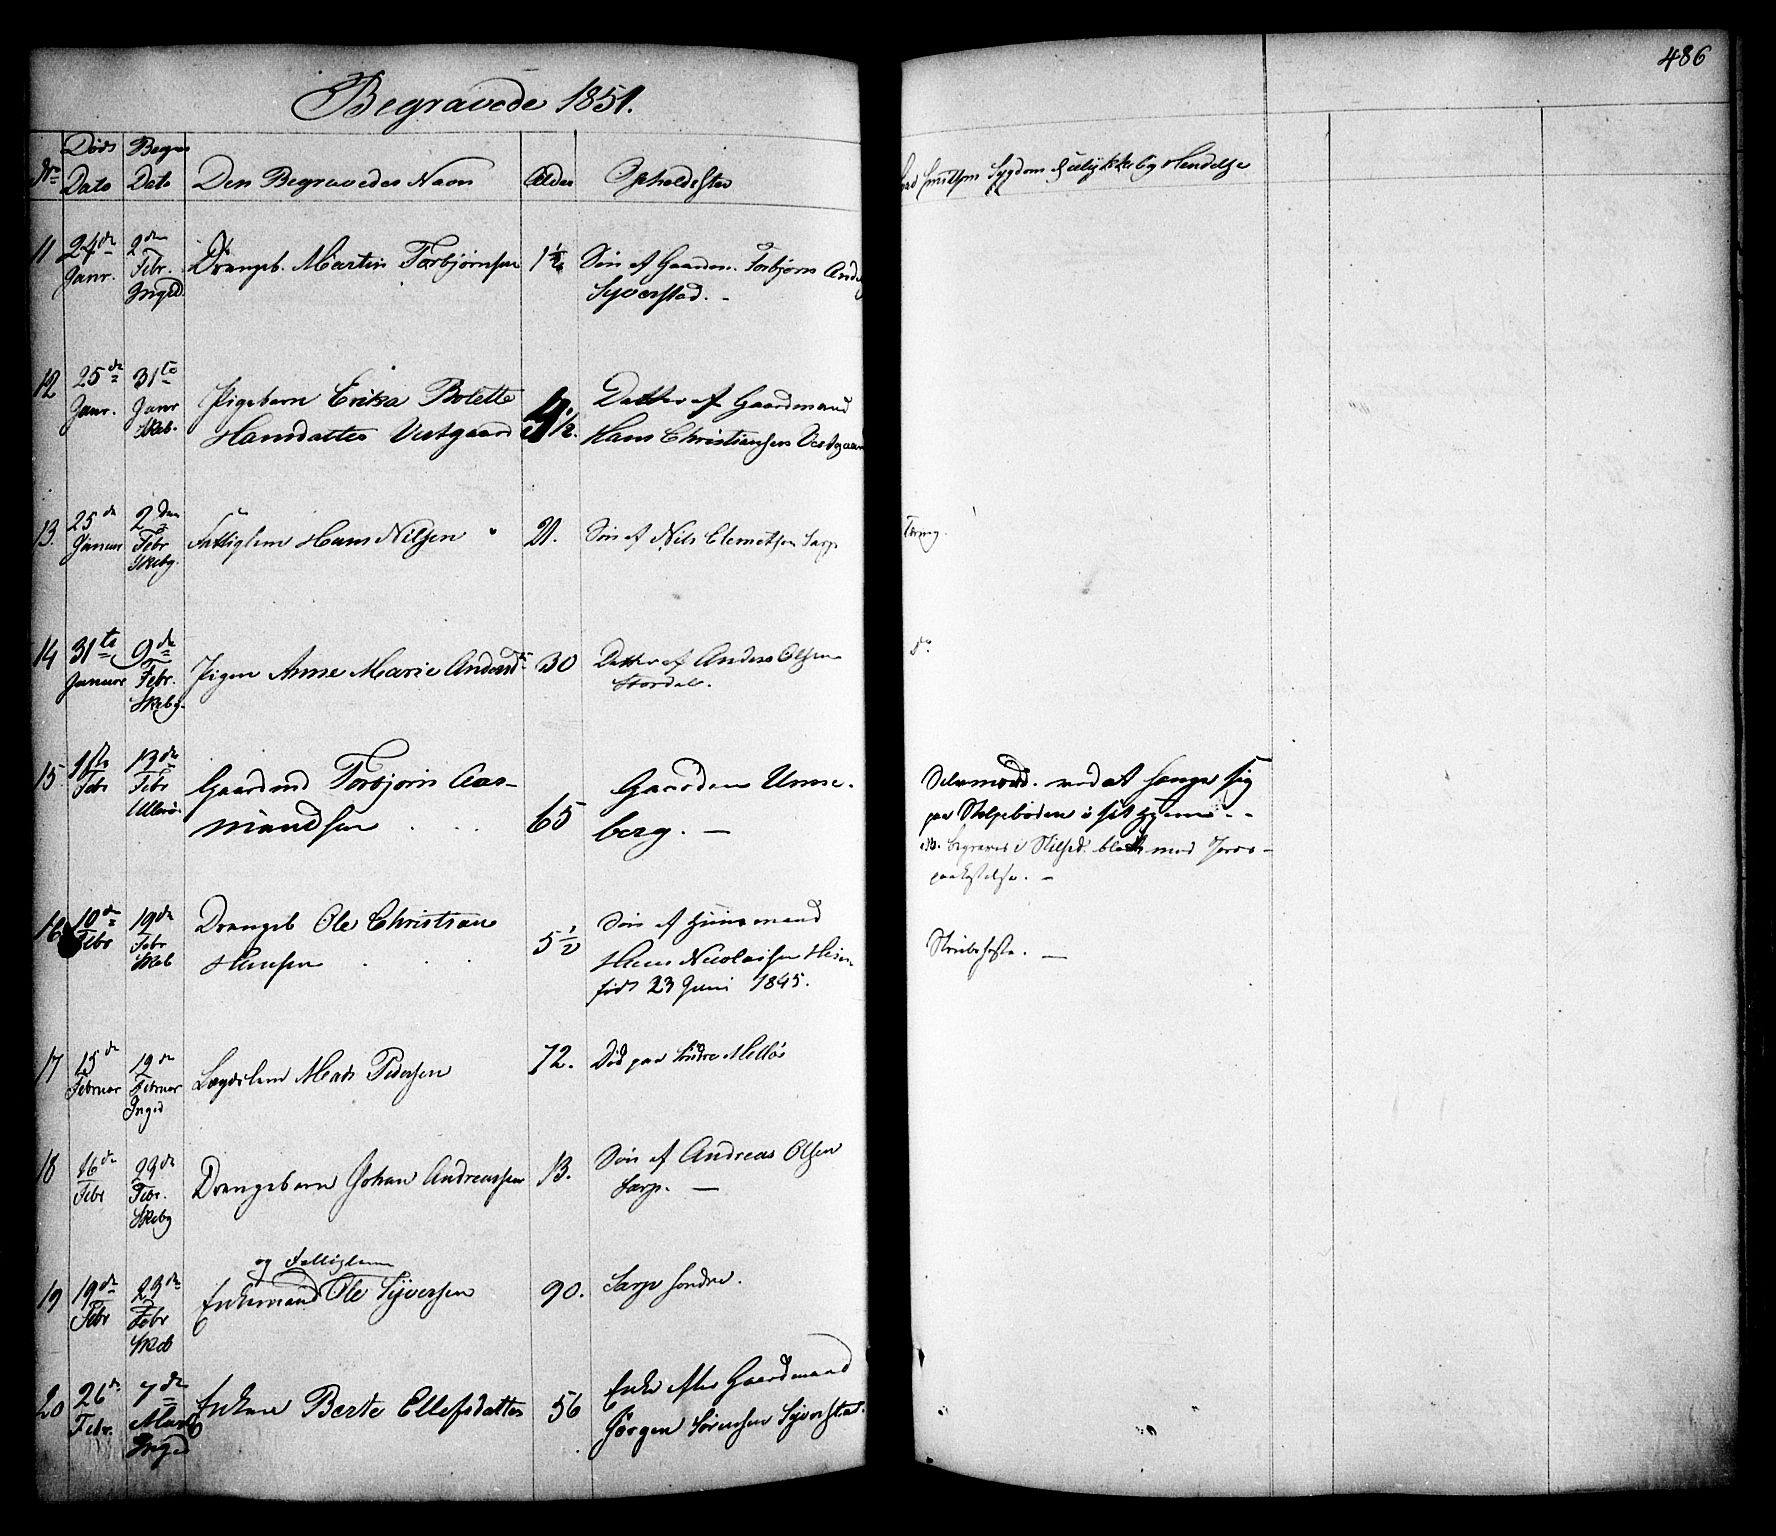 486
Begravede 1851.
No Døds Dato Begr Dato Den Begravedes Navn Alder Opholdsted
smitsom Sygdom Ulykkelig Hendelse
11 24de Janr. 2den Febr. Inged. Drengeb. Martin Torbjørnsen 1½ Søn af Gaardm. Torbjørn
Syverstad. -
12 25de Janr. 31te Janr Skeb. Pigebarn Erika Bolette
Hansdatter Vestgaard ½. Datter af Gaardmand
Hans Christiansen Vestgaard
13. 25de Januar 2den Febr Skebg. Fattiglem Hans Nilsen 21. Søn af Nils Clemetsen Sarp
Tæring.
14 31te Januar 9de Febr. Skebg. Pigen Anne Marie Andersd 30 Datter af Anders Olsen
Stordal.
do
15. 1ste Febr 13de Febr Ullerø Gaardmd Torbjørn Aas-
mundsen 65 Gaarden Unne-
berg. -
Selvmord. ved at hænge sig
paa Stolpeboden i sit Hjem - -
NB. begraves i Stilhed blot med Jords-
paakastelse. -
16 10de Febr 19de Febr Skeb Drengeb Ole Christian
Hansen 5½ Søn af Huusmand
Hans Nicolaisen
født 23 Juni 1845.
Strubehoste. -
17 15de Februar 19de Februar Inged Lægdslem Mads Pedersen 72. Død paa Søndre Melløs
18 16de Febr 23de Febr. Skebg Drengebarn Johan Andreassen 13. Søn af Andreas Olsen
Sarp. -
og Fattiglem
19 19de Febr 23de Febr Skeb Enkemand Ole Syversen 90. Sarp søndre.
20 26de Febr. 7de Marts Inged Enken Berte Ellefsdatter 56 Enke efter Gaardmand
Jørgen Sørensen Syverstad.